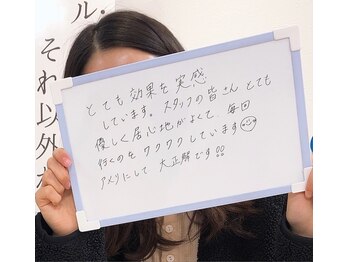 ル.
それ以外
とても 効果を 実感
しています。スタッフの皆さん とても
優しく居心地がよくて、毎回
行くのを ワクワクしています
アメリにして 大正解です!!